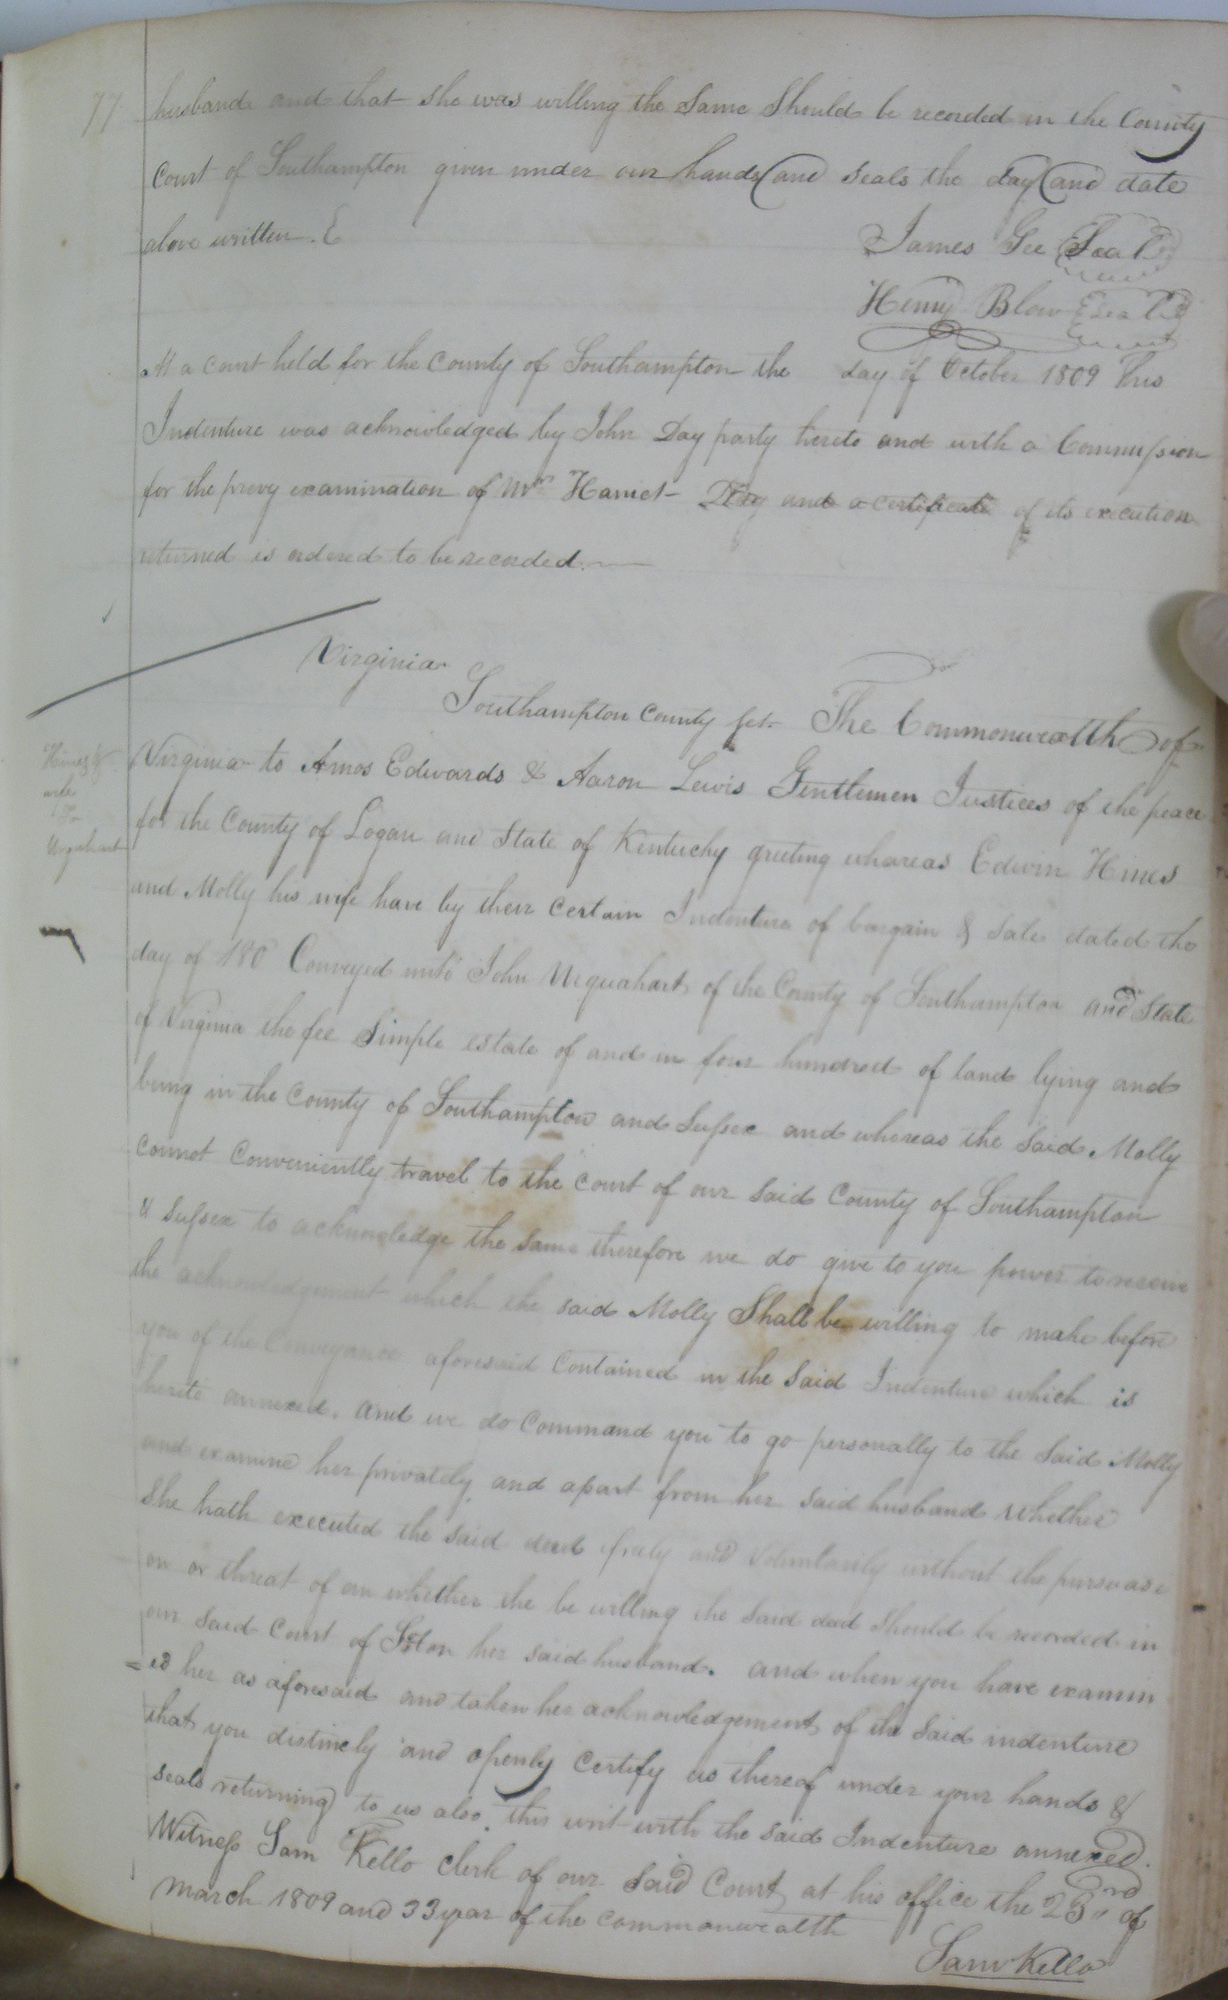 77
husband and that she was willing the Same Should be recorded in the County
Court of Southampton given under our hands and seals the day and date
above written. &
James Gee Seal
Henry Blow Seal
At a court held for the County of Southampton the day of October 1809 This
Indenture was acknowledged by John Day party hereto and with a Commission
for the privy examination of Mrs Harriet Day and a certificate of its execution
returned is ordered to be recorded.
Virginia
Southampton County Sct. The Commonwealth of
Hines &
wife
To
Urquhart
Virginia to Amos Edwards & Aaron Lewis Gentlemen Justices of the peace
for the County of Logan and State of Kentuchy greeting whareas Edwin Hines
and Molly his wife have by their Certain Indenture of bargain & Sale dated the
day of 180 Conveyed unto John Urquahart of the County of Southampton and State
of Virginia the fee Simple estate of and in four hundred of land lying and
being in the County of Southampton and Sussex and whereas the Said Molly
connot Conveniently travel to the Court of our Said County of Southampton
& Sussex to acknowledge the same therefore we do give to you power to receive
the acknowledgement which the said Molly Shall be willing to make before
you of the Conveyance aforesaid Contained in the Said Indenture which is
hereto annexed. and we do Command you to go personally to the Said Molly
and examine her privately and apart from her said husband whether
She hath executed the said deed freely and voluntarily without the persuasi
on or threat of on whether she be willing the said deed should be recorded in
our said Court of Ston her said husband. and when you have examin
=ed her as aforesaid and taken her acknowledgement of the Said indenture
that you distincly and openly Certify us thereof under your hands &
seals returning to us also this writ with the said Indenture annexed.
Witness Sam Kello clerk of our Said Court at his office the 23rd of
March 1809 and 33 year of the commonwealth
Saml Kello